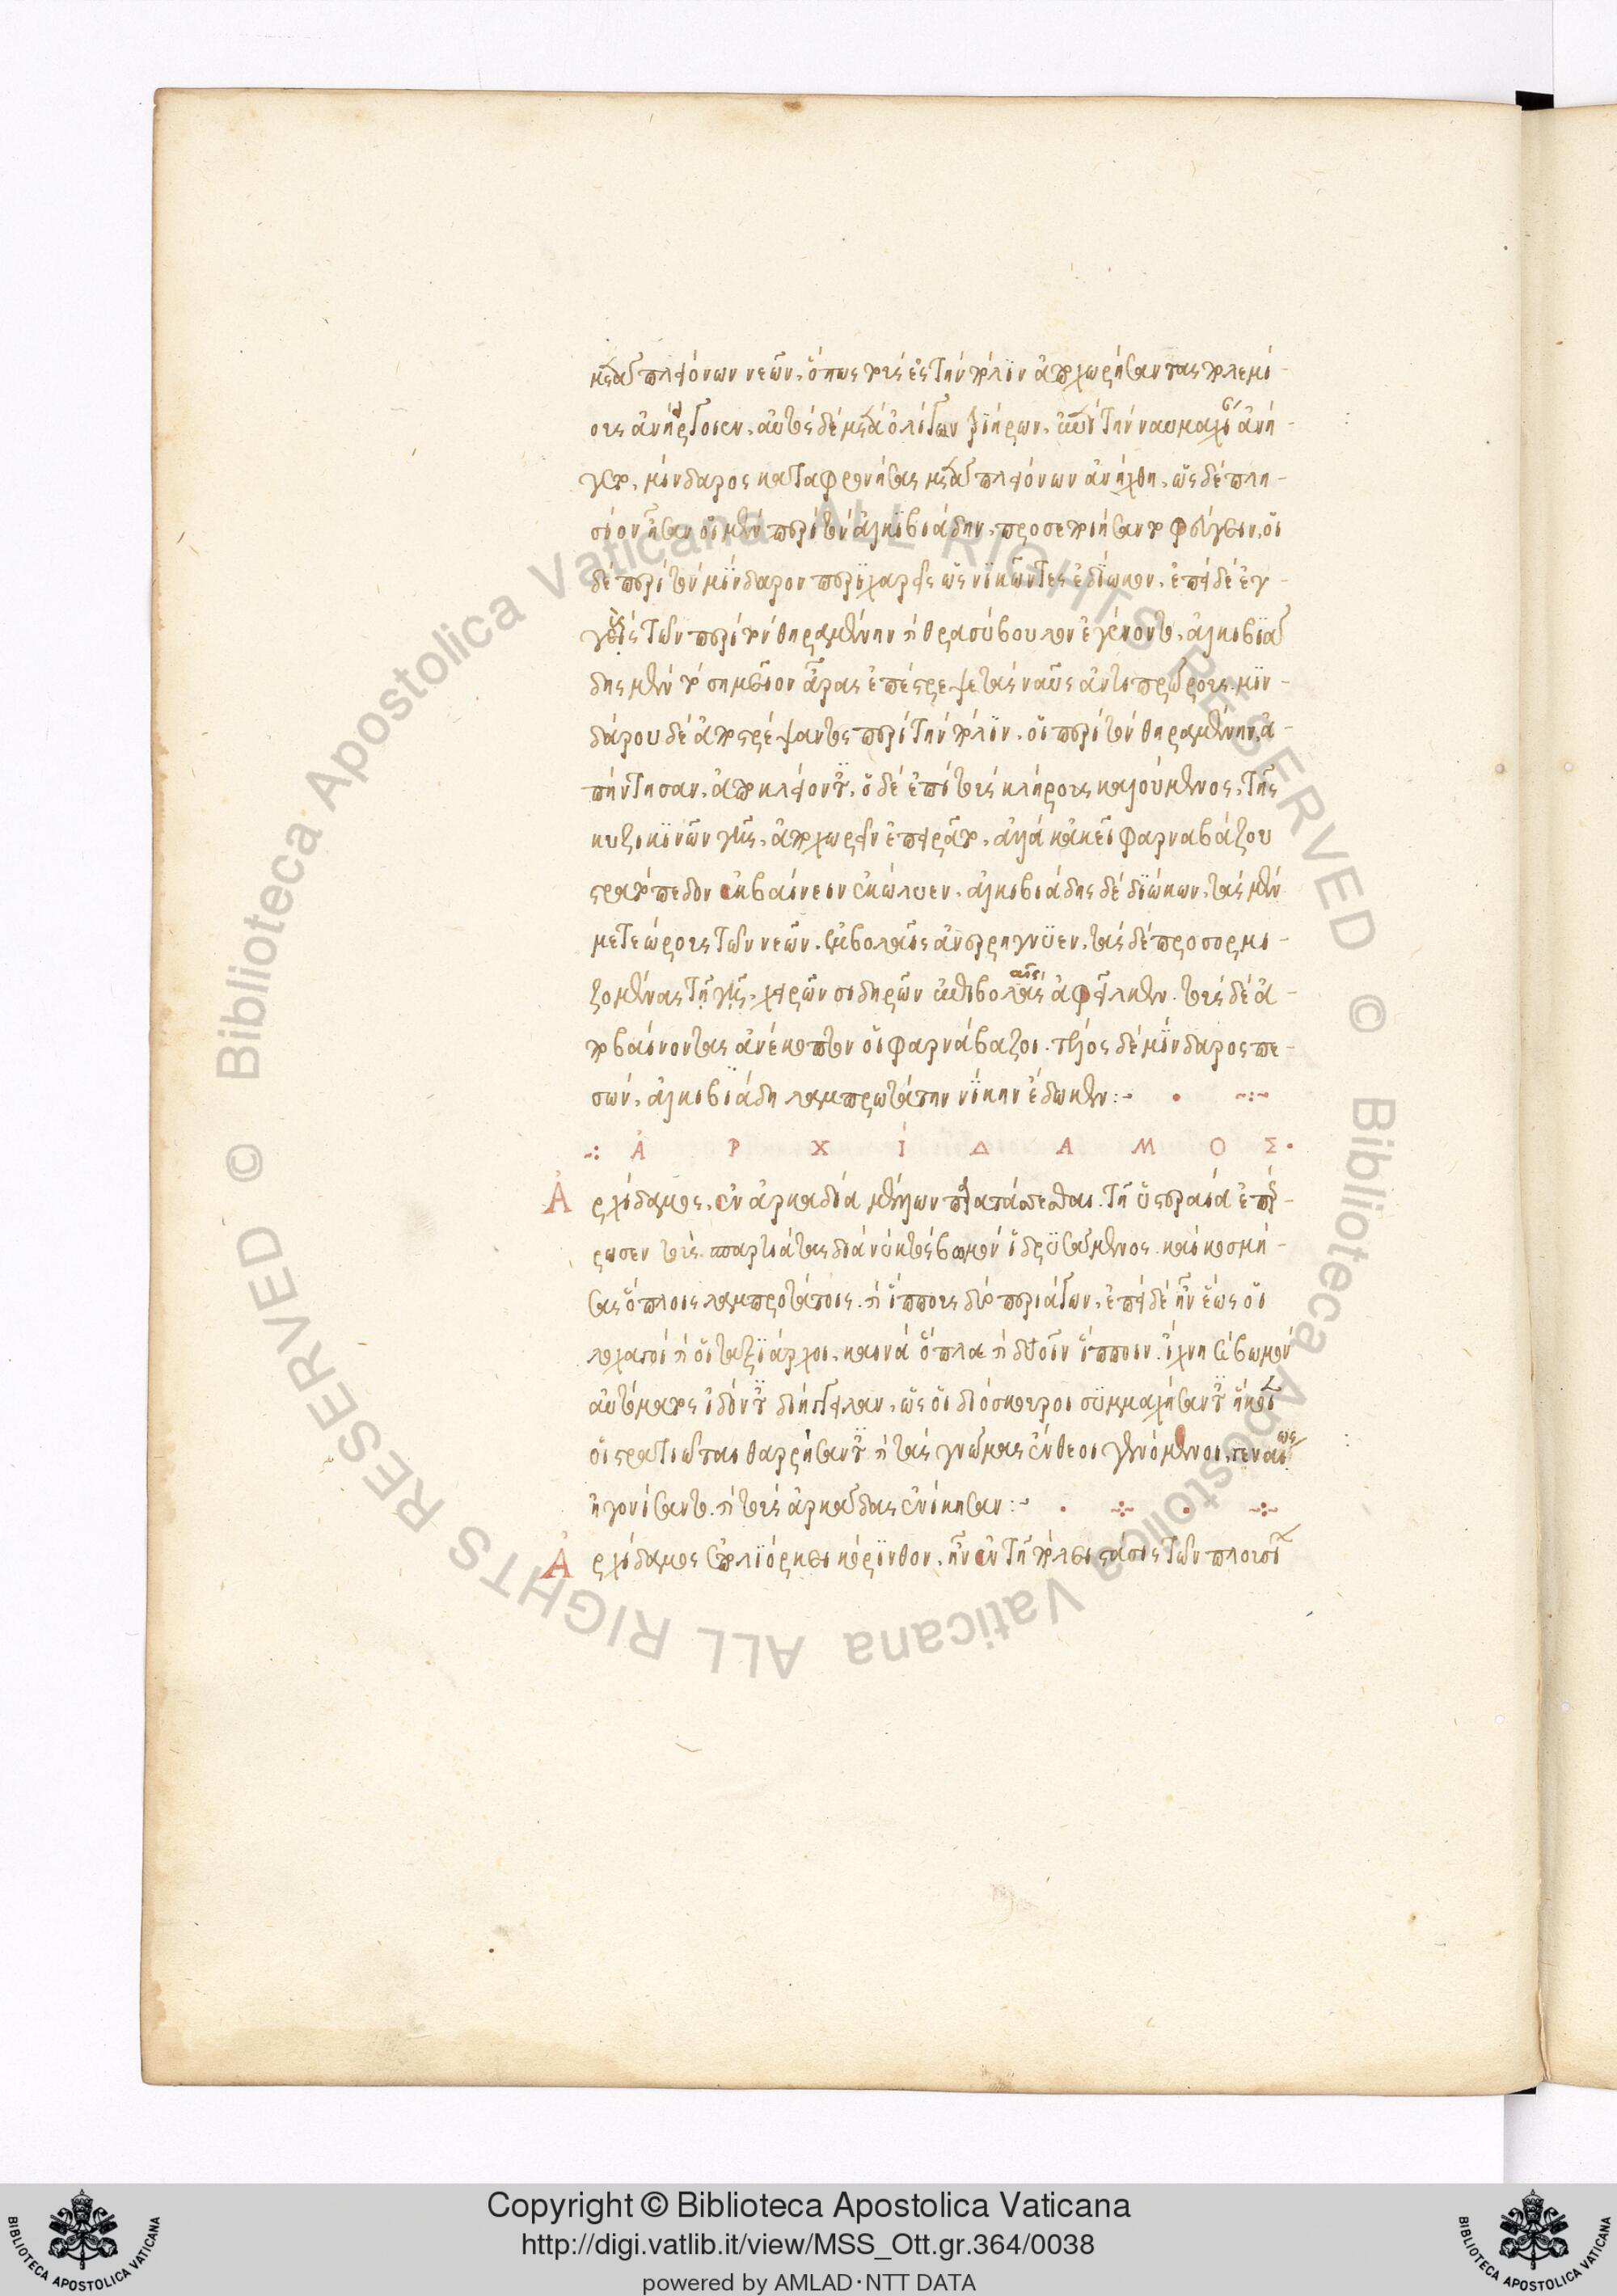 μετὰ πλειόνων νεῶν, ὅπως τοὺς ἐς τὴν πόλιν ἀποχωρήσαντας πολεμί-
ους ἀνείργοιεν. αὐτὸς δὲ μετὰ ὀλίγων τριήρων, ἐπὶ τὴν ναυμαχίαν ἀνή-
γετο. μίνδαρος καταφρονήσας μετὰ πλειόνων ἀνήχθη. ὡς δὲ πλη-
σίον ἦσαν οἱ μὲν περὶ τὸν ἀλκιβιάδην, προσεποιήσαντο φεύγειν. οἱ
δὲ περὶ τὸν μίνδαρον περιχαρεῖς ὡς νικῶντες ἐδίωκον. ἐπεὶ δὲ ἐγ-
γὺς τῶν περὶ τὸν θηραμένην καὶ θρασύβουλον ἐγένοντο, ἀλκιβιά
δης μὲν τὸ σημεῖον ἄρας ἐπέστρεψε τὰς ναῦς ἀντιπρώρους. μιν-
δάρου δὲ ἀποστρέψαντος περὶ τὴν πόλιν, οἱ περὶ τὸν θηραμένην, ἀ-
πήντησαν, ἀποκλείοντες. ὁ δὲ ἐπὶ τοὺς κλήρους καλούμενος, τῆς
κυζικηνῶν γῆς, ἀποχωρεῖν ἐπειρᾶτο, ἀλλὰ κἀκεῖ φαρναβάζου
στρατόπεδον ἐκβαίνειν ἐκώλυεν. ἀλκιβιάδης δὲ διώκων, τὰς μὲν
μετεώρους τῶν νεῶν, ἐμβολαῖς ἀνερρήγνυεν, τὰς δὲ προσορμι-
ζομένας τῇ γῇ, χειρῶν σιδηρῶν ἐπιβολαῖς ἀφεῖλκεν. τοὺς δὲ ἀ-
ποβαίνοντας ἀνέκοπτον οἱ φαρνάβαζοι. τέλος δὲ μίνδαρος πε-
σών, ἀλκιβιάδῃ λαμπρωτάτην νίκην ἔδωκεν:-
ἈΡΧΊΔΑΜΟΣ
Ἀρχίδαμος, ἐν ἀρκαδία μέλλων παρατάττεσθαι τῇ ὑστεραία ἐπέρ-
ρωσεν τοὺς σπαρτιάτας διὰ νυκτὸς βωμὸν ἱδρυσάμενος. καὶ κοσμή-
σας ὅπλοις λαμπροτάτοις. καὶ ἵππους δύο περιάγων. ἐπεὶ δὲ ἦν ἕως οἱ
λοχαγοὶ καὶ οἱ ταξίαρχοι, καινὰ ὅπλα καὶ δυοῖν ἵπποιν ἴχνη καὶ βωμὸν
αὐτόματος ἰδόντες διήγγειλαν, ὡς οἱ διόσκουροι συμμαχήσαντες ἥκοι
οἱ στρατιῶται θαρρήσαντες καὶ τὰς γνώμας ἔνθεοι γενόμενοι, γενναίως
ἠγωνίσαντο. καὶ τοὺς ἀρκάδας ἐνίκησαν:-
Ἀρχίδαμος ἐπολιόρκει κόρινθον, ἦν ἐν τῇ πόλει στάσις τῶν πλουσί
Copyright © Biblioteca Apostolica Vaticana
http://digi.vatlib.it/view/MSS_Ott.gr.364/0038
powered by AMLAD·NTT DATA